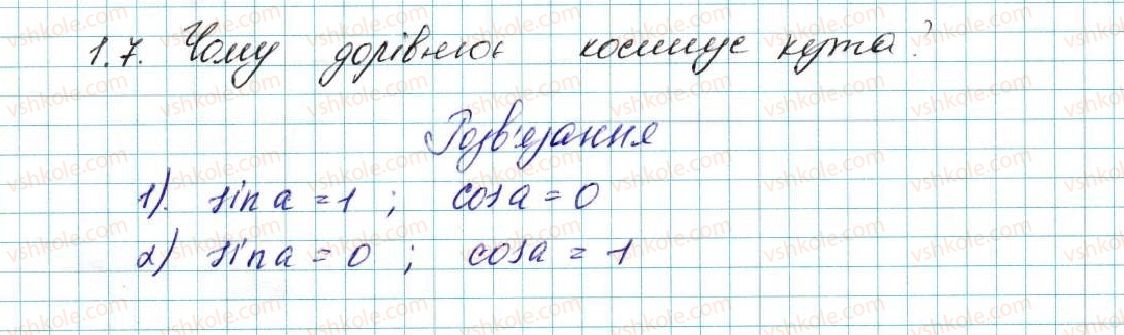 1.7. Чому дорівнює косинус кута?
Розв'язання
1) sin a = 1 ; cos a = 0
2) sin a = 0 ; cos a = 1